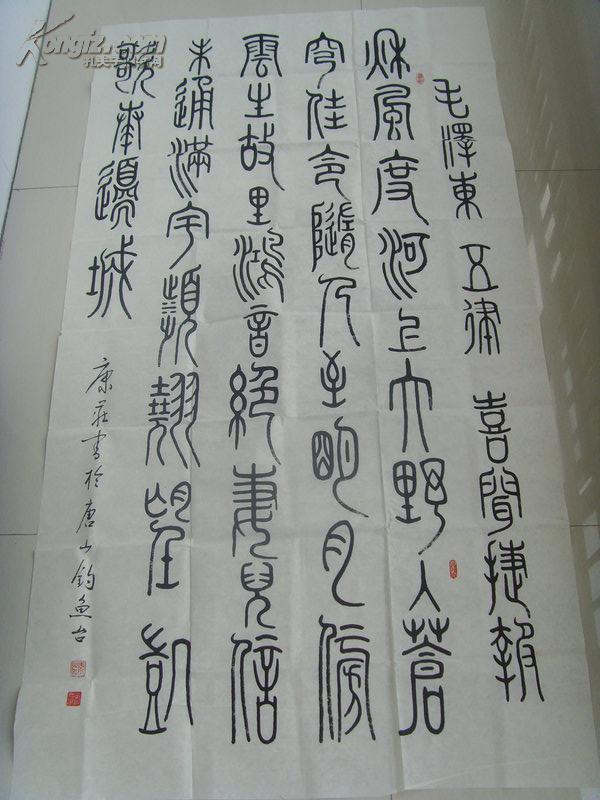 毛澤東 五律 喜聞捷報
秋風度河上大野入蒼
穹佳令隨人至明月傍
雲生故里鴻音絕妻兒信
未通滿宇頻翹望凱
歌奏邊城
康莊書於唐山釣魚台
Kongfz.com
孔夫子旧书网